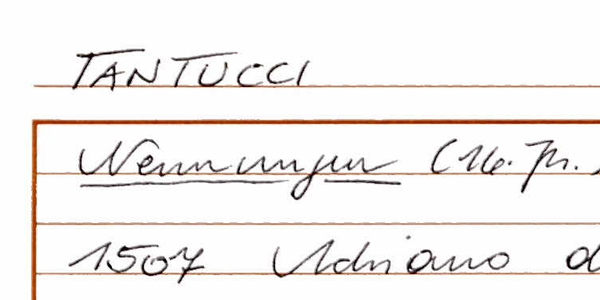 TANTUCCI
Nennungen (16. Jh.)
1507 Adriano d